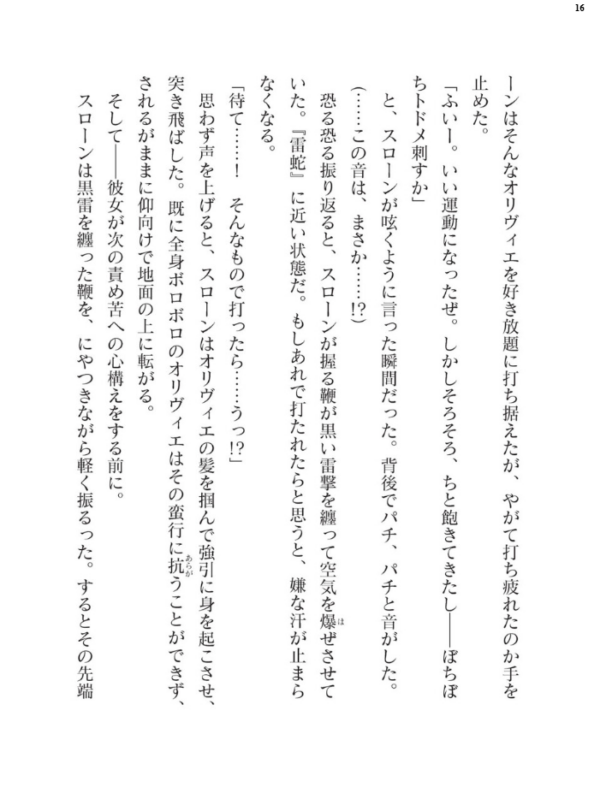 16
ーンはそんなオリヴィエを好き放題に打ち据えたが、やがて打ち疲れたのか手を
止めた。
「ふいー。いい運動になったぜ。しかしそろそろ、ちと飽きてきたし――ぼちぼ
ちトドメ刺すか」
と、スローンが呟くように言った瞬間だった。背後でパチ、パチと音がした。
(……この音は、まさか……!?)
恐る恐る振り返ると、スローンが握る鞭が黒い雷撃を纏って空気を爆ぜさせて
いた。『雷蛇』に近い状態だ。もしあれで打たれたらと思うと、嫌な汗が止まら
なくなる。
「待て……! そんなもので打ったら……うっ!?」
思わず声を上げると、スローンはオリヴィエの髪を掴んで強引に身を起こさせ、
突き飛ばした。既に全身ボロボロのオリヴィエはその蛮行に抗うことができず、
されるがままに仰向けで地面の上に転がる。
そして――彼女が次の責め苦への心構えをする前に。
スローンは黒雷を纏った鞭を、にやつきながら軽く振るった。するとその先端